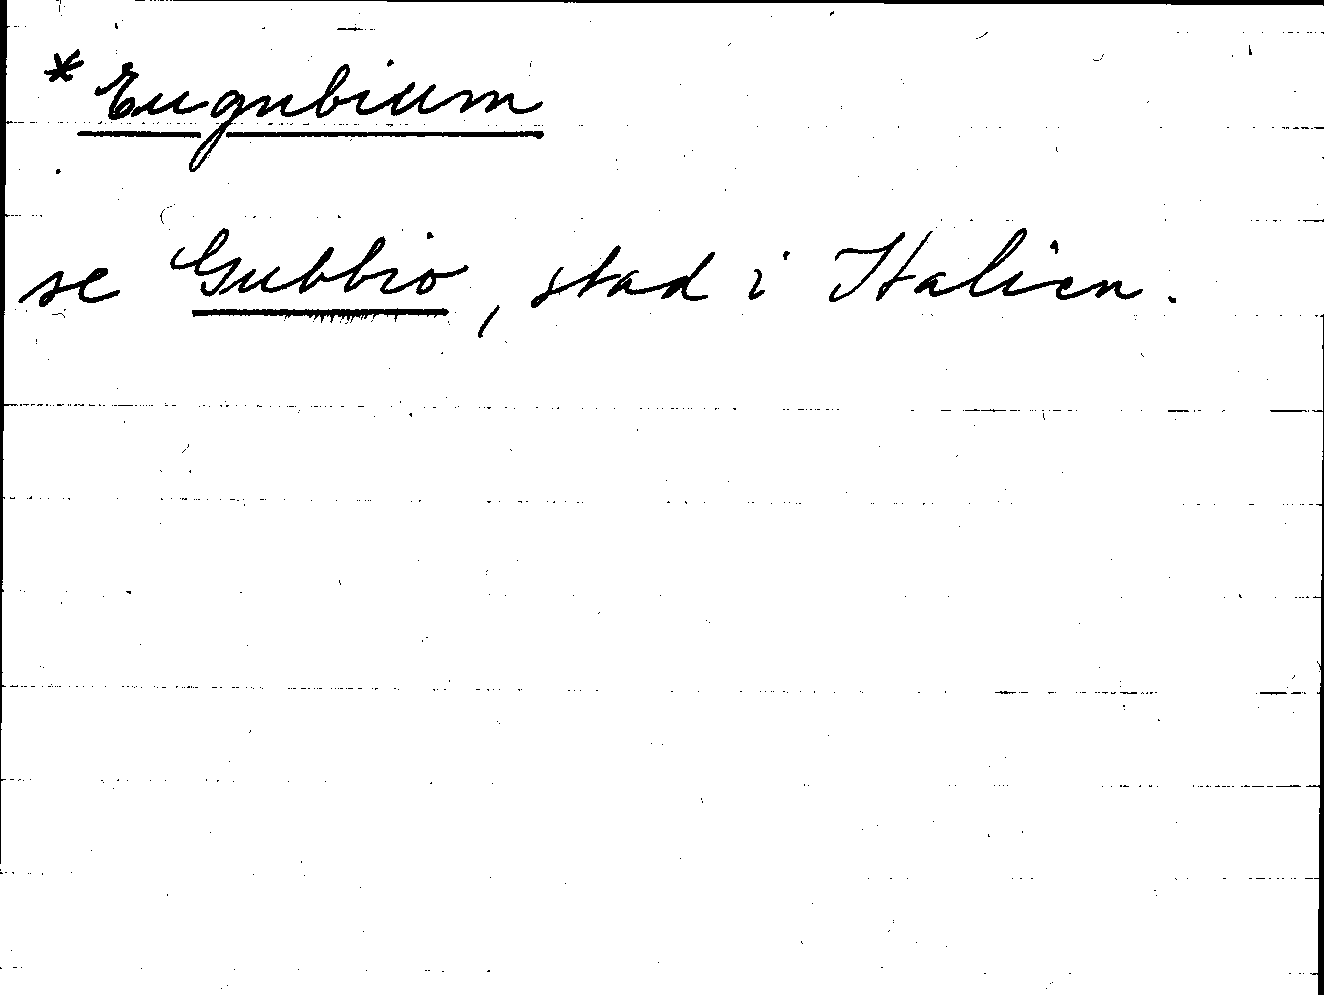 * Eugubium
se Gubbio, stad i Italien.